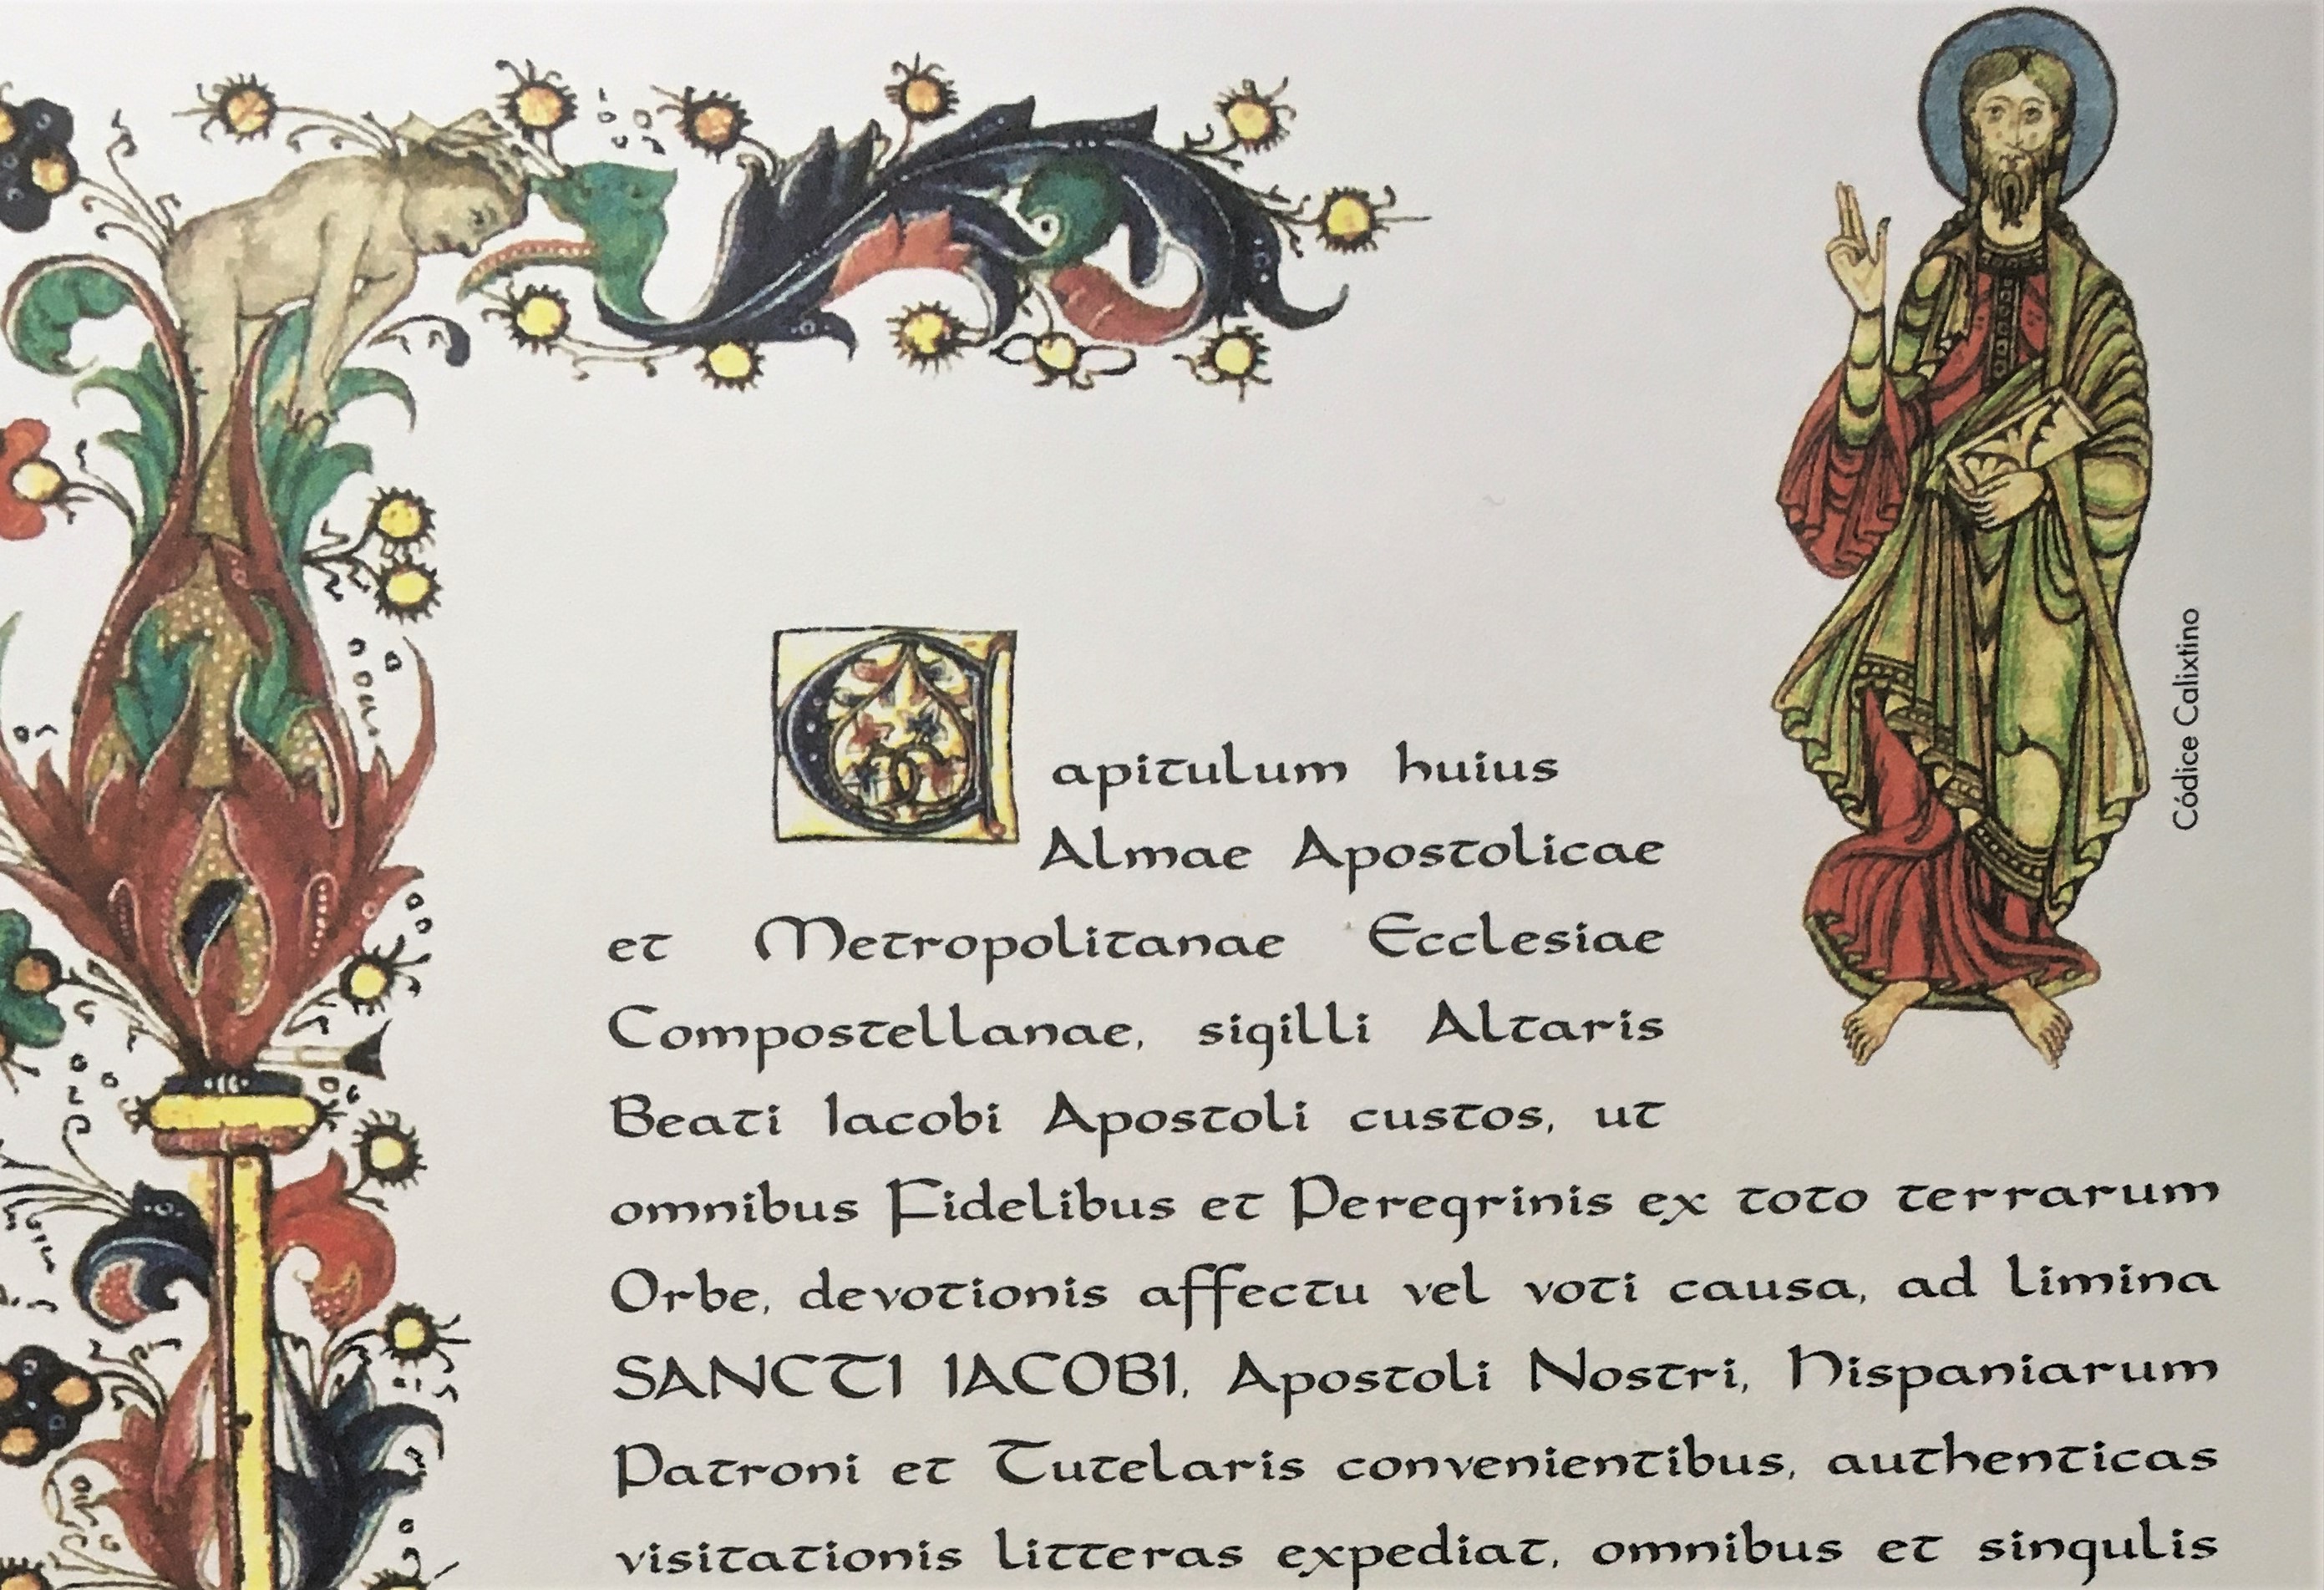 Capitulum huius
Almae Apostolicae
et Metropolitanae Ecclesiae
Compostellanae, sigilli Altaris
Beati Iacobi Apostoli custos, ut
omnibus Fidelibus et Peregrinis ex toto terrarum
Orbe, devotionis affectu vel voti causa, ad limina
SANCTI IACOBI, Apostoli Nostri, Hispaniarum
Patroni et Tutelaris convenientibus, authenticas
visitationis litteras expediat, omnibus et singulis
Códice Calixtino